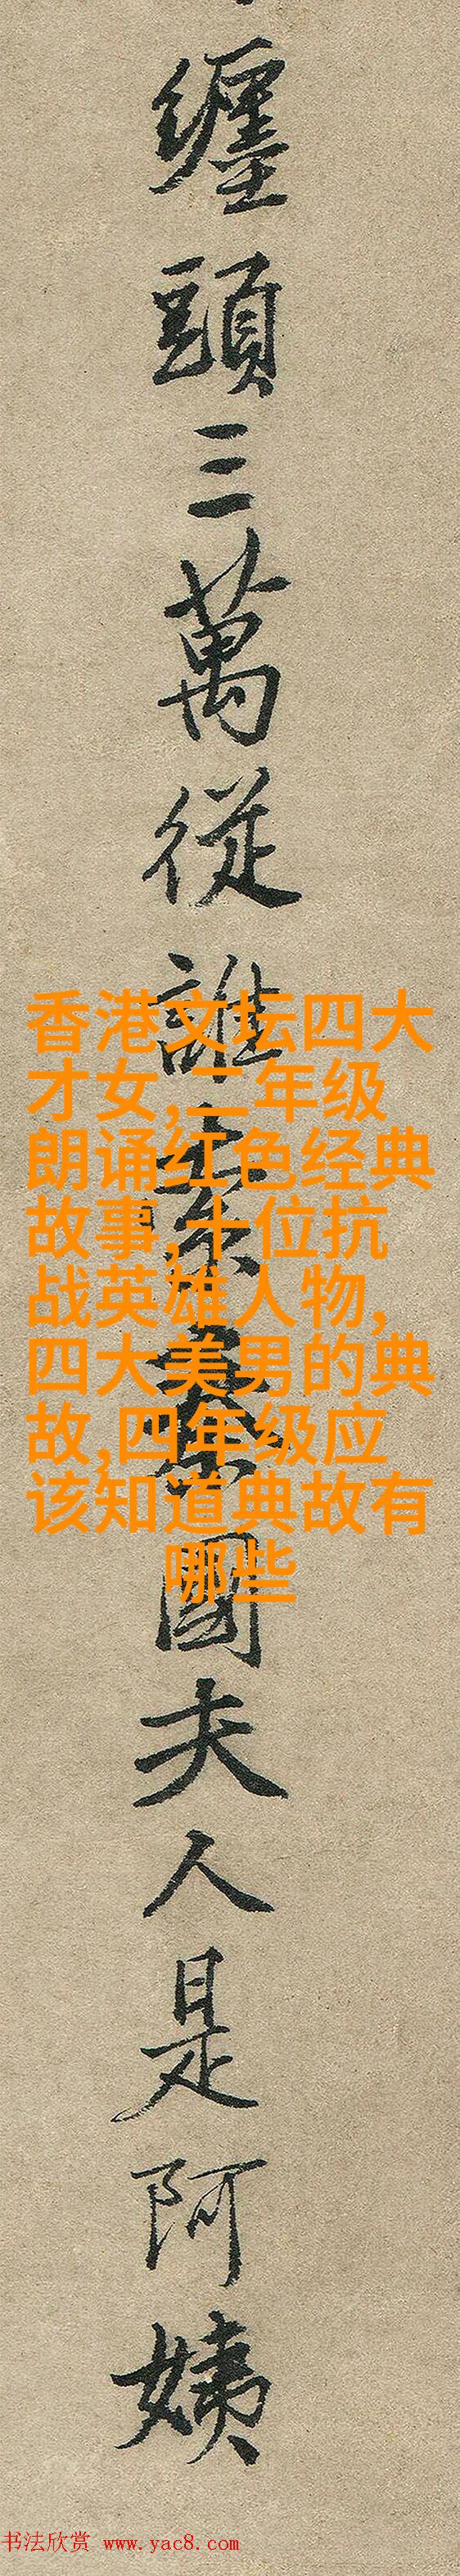 纏頭三萬從誰索秦國夫人是阿姨
香港文坛四大
才女,二年级
朗诵红色经典
故事,十位抗
战英雄人物,
四大美男的典
故,四年级应
该知道典故有
哪些
书法欣赏 www.yac8.com